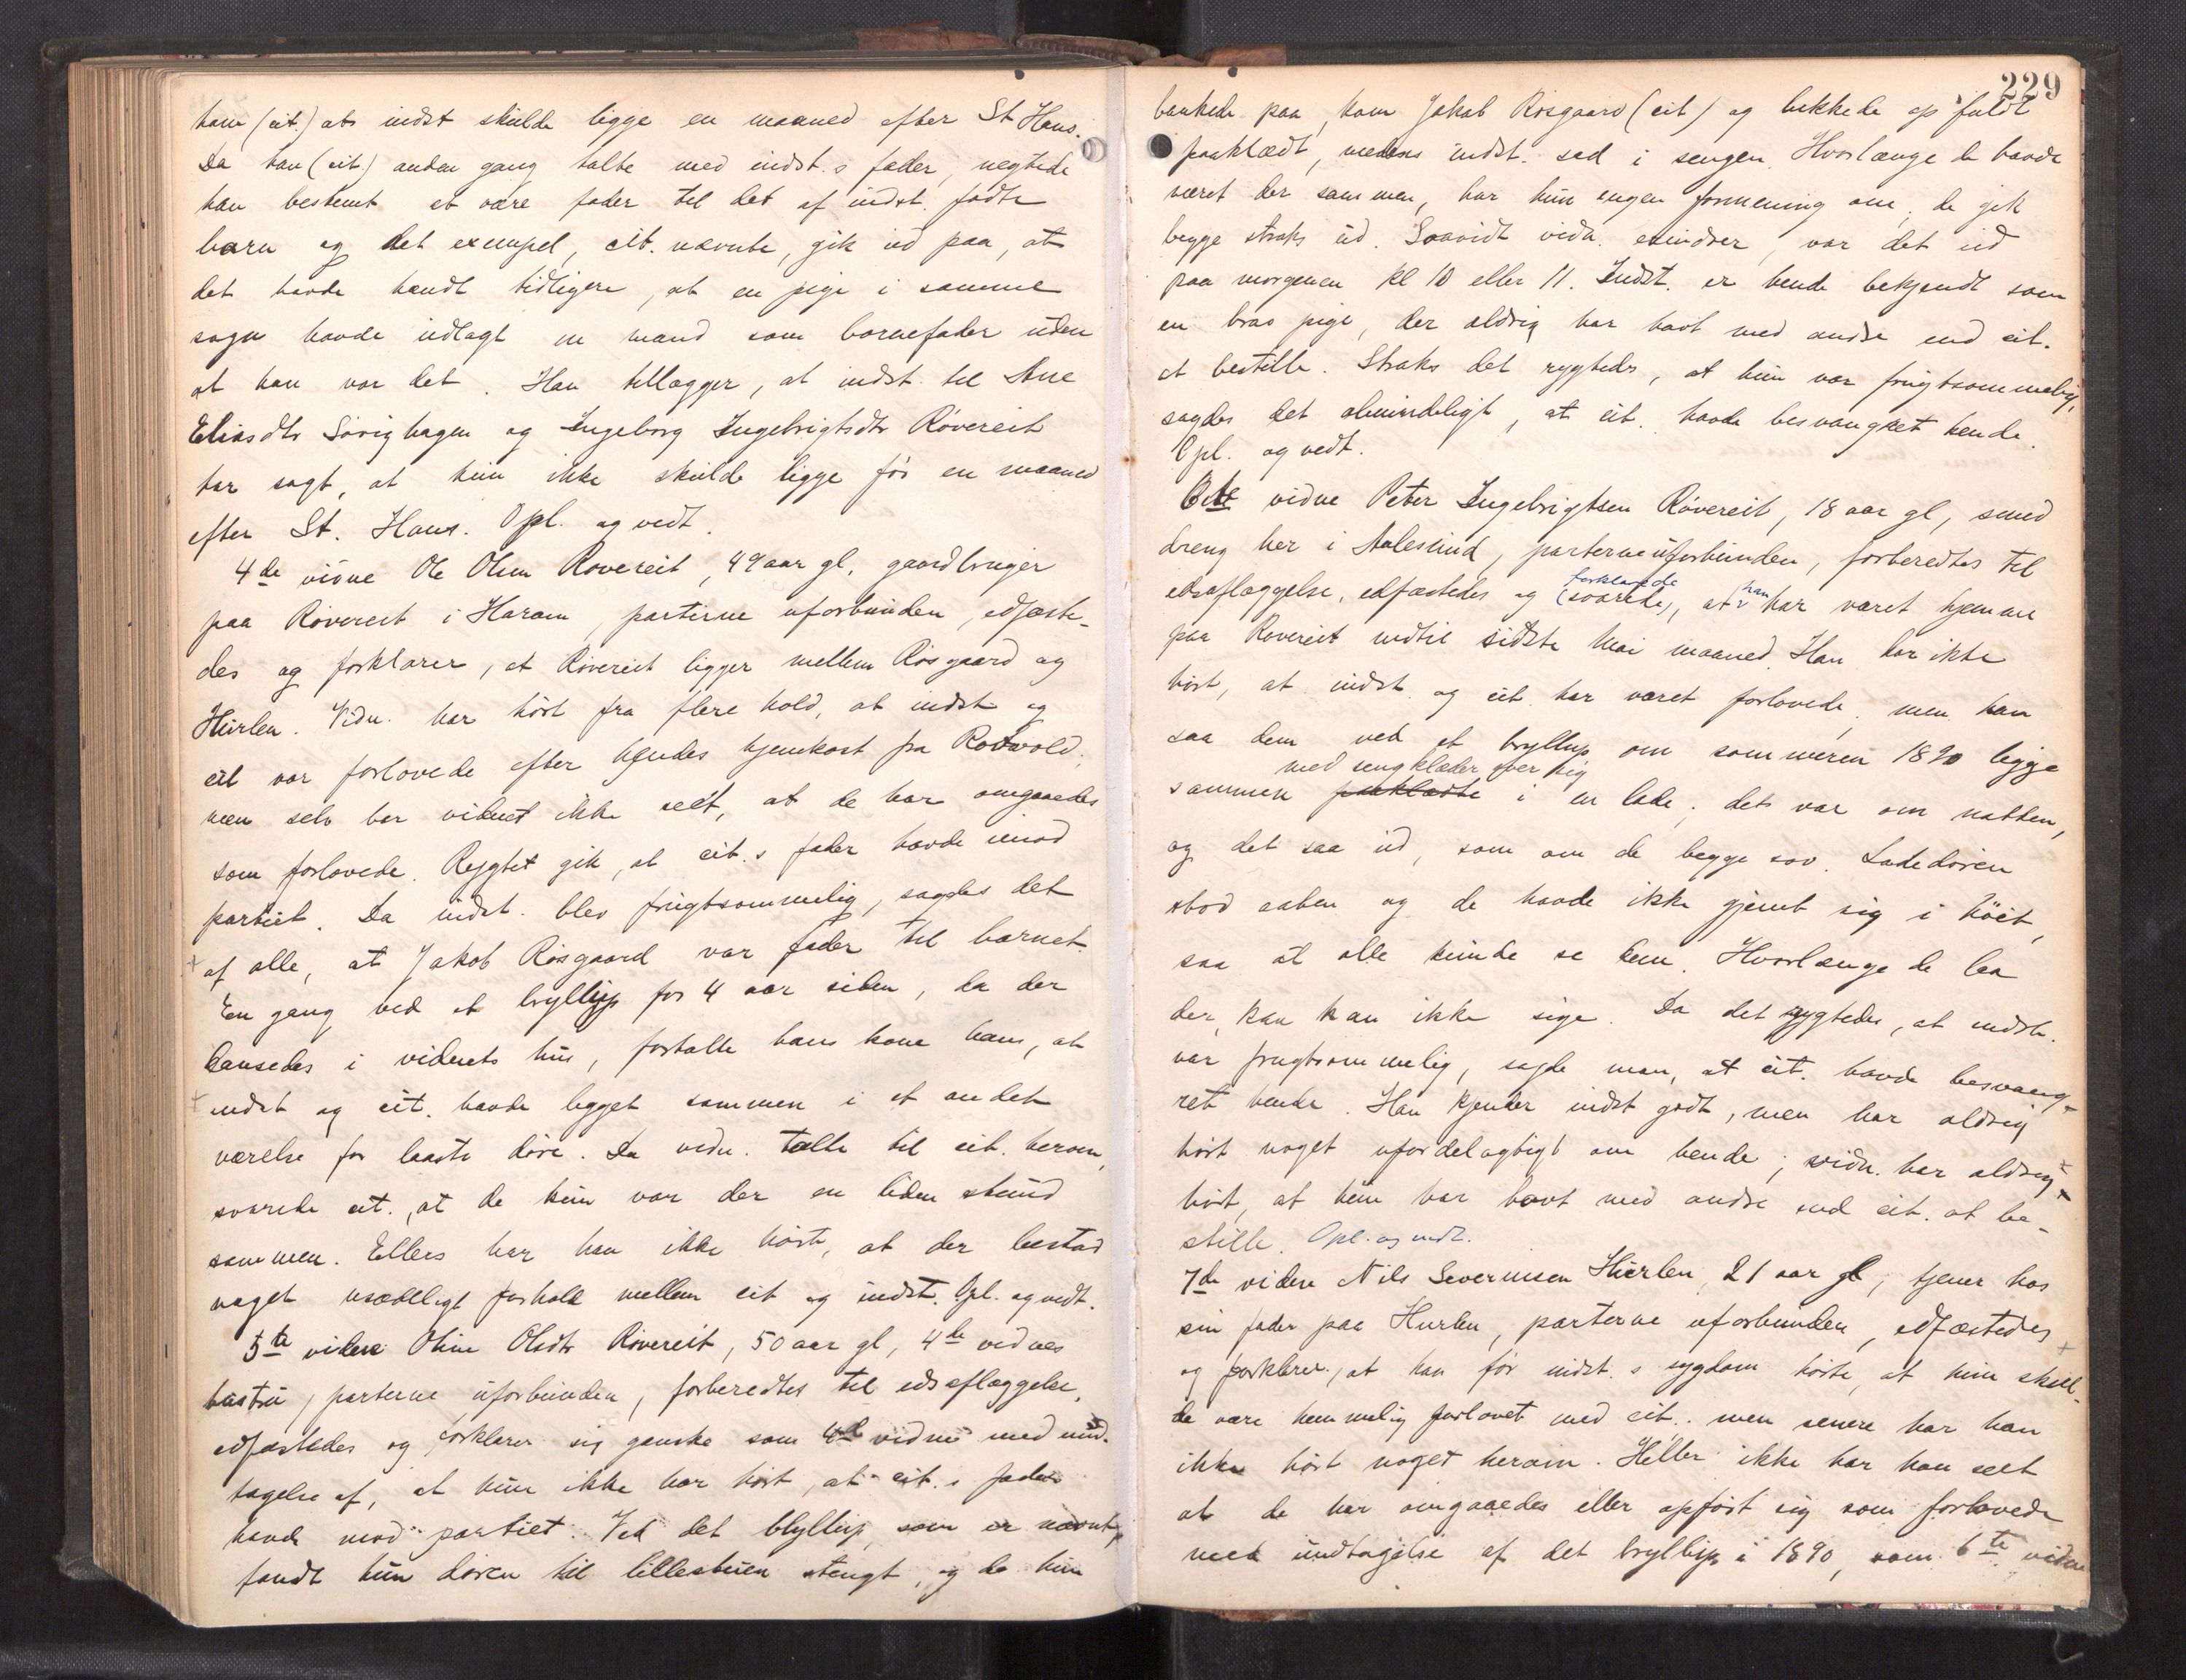 ham (cit.) at indst skulde ligge en maaned efter St Hans.
Da han (cit) anden gang talte med indst.s fader, negtede
han bestemt at være fader til det af indst. fødte
barn og det exempel, cit. nævnte, gik ud paa, at
det havde hændt tidligere, at en pige i samme
sogn havde udlagt en mand som barnefader uden
at han var det. Han tillægger, at indst. til Ane
Eliasdtr Søvighagen og Ingeborg Ingebrigtsdtr Røvereit
har sagt, at hun ikke skulde ligge før en maaned
efter St. Hans. Opl. og vedt.
4de vidne Ole Olsen Røvereit, 49 aar gl, gaardbruger
paa Røvereit i Haram, parterne uforbunden, edfæste-
des og forklarer, at Røvereit ligger mellem Røsgaard og
Hurlen. Vidn. har hørt fra flere hold, at indst og
cit var forlovede efter hendes hjemkost fra Rodvold,
men selv har vidnet ikke seet, at de har omgaaedes
som forlovede. Rygtet gik, at cit.s fader havde imod
partiet. Da indst. blev frugtsommelig, sagdes det
+ af alle, at Jakob Røsgaard var fader til barnet.
En gang ved et bryllup for 4 aar siden, da der
dansedes i vidnets hus, fortalte hans kone ham, at
+ indst og cit. havde ligget sammen i et andet
værelse for laaste døre. Da vidn. talte til cit. herom,
svarede cit., at de kun var der en liden stund
sammen. Ellers har han ikke hørt, at der bestod
noget usædeligt forhold mellem cit og indst. Opl. og vedt.
5te vidne Oline Olsdtr Røvereit, 50 aar gl, 4de vidnes
hustru, parterne uforbunden, forberedtes til edsaflæggelse,
edfæstedes og forklarer sig ganske som 4de vidne med und-
tagelse af, at hun ikke har hørt, at cit.s fader
havde mod partiet. Ved det bryllup, som er nævnt,
fandt hun døren til lillestuen stengt, og da hun
229
bankede paa, kom Jakob Røsgaard (cit) og lukkede op fuldt
paaklædt, medens indst. sad i sengen. Hvorlænge de havde
været der sammen, har hun ingen formening om, de gik
begge straks ud. Saavidt vidn. erindrer, var det ud
paa morgenen kl 10 eller 11. Indst. er hende bekjendt som
en brav pige, der aldrig har havt med andre end cit.
at bestille. Straks det rygtedes, at hun var frugtsommelig,
sagdes det almindeligt, at cit. havde besvangret hende.
Opl. og vedt.
6te vidne Peter Ingebrigtsen Røvereit, 18 aar gl, smed
dreng her i Aalesund, parterne uforbunden, forberedtes til
edsaflæggelse, edfæstedes og forklarede (svarede), at han har været hjemme
paa Røvereit indtil sidste Mai maaned. Han har ikke
hørt, at indst. og cit. har været forlovede, men han
saa dem ved et bryllup om sommeren 1890 ligge
sammen paaklædte med sengklæder over sig i en lade; det var om natten,
og det saa ud, som om de begge sov. Ladedøren
stod aaben og de havde ikke gjemt sig i höit,
saa at alle kunde se dem. Hvorlænge de laa
der, kan han ikke sige. Da det rygtedes, at indst.
var frugtsommelig, sagde man, at cit. havde besvang-
ret hende. Han kjender indst godt, men har aldrig
hørt noget ufordelagtigt om hende; vidn. har aldrig +
hørt, at hun har havt med andre end cit. at be-
stille. Opl. og vedt.
7de vidne Nils Severinsen Hurlen, 21 aar gl, tjener hos
sin fader paa Hurlen, parterne uforbunden, edfæstedes +
og forklarer, at han før indst.s sygdom hørte, at hun skul-
de være hemmelig forlovet med cit., men senere har han
ikke hørt noget herom. Heller ikke har han seet
at de har omgaaedes eller opført sig som forlovede
med undtagelse af det bryllup i 1890, som 6te vidne